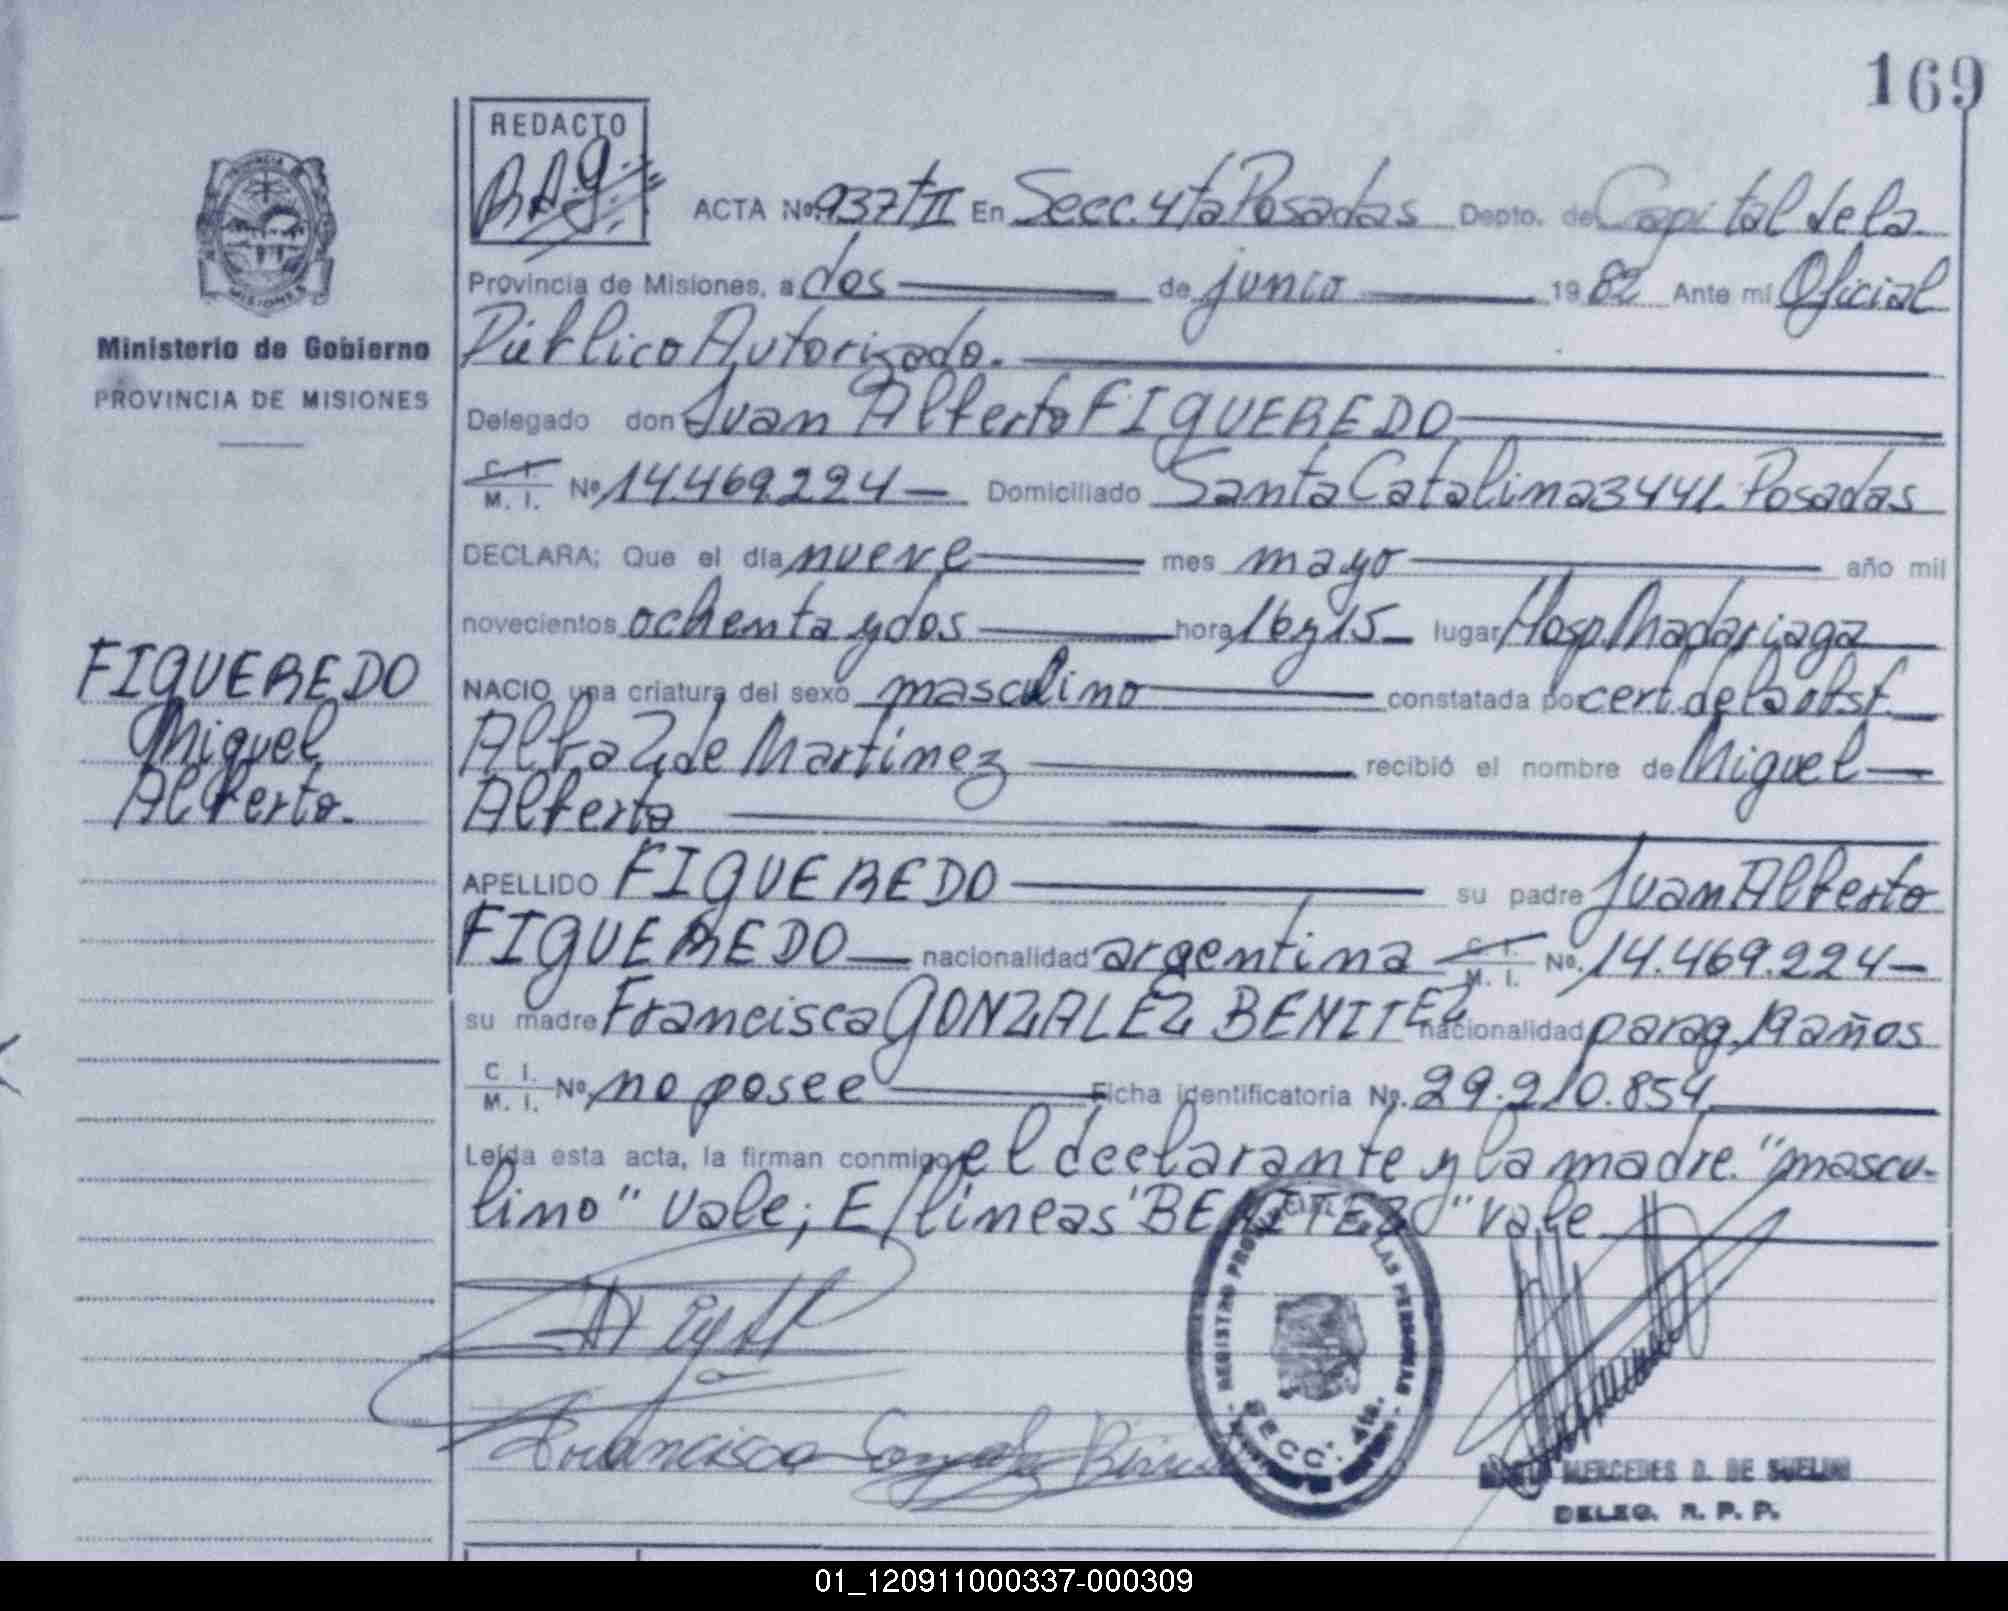 169
REDACTO
ACTA Nº 937 t II En Secc. 4ta Posadas Depto. de Capital de la
Provincia de Misiones, a dos de junio 1982 Ante mí Oficial
Ministerio de Gobierno
Público Autorizado.
PROVINCIA DE MISIONES
Delegado don Juan Alberto FIGUEREDO
C. I.
M. I. Nº 14.469.224 Domiciliado Santa Catalina 3441. Posadas
DECLARA; Que el día nueve mes mayo año mil
novecientos ochenta y dos hora 16 y 15 lugar Hosp. Madariaga
FIGUEREDO
NACIO una criatura del sexo masculino constatada por cert. de la obst.
Miguel
Alba Z. de Martinez recibió el nombre de Miguel
Alberto.
Alberto
APELLIDO FIGUEREDO su padre Juan Alberto
FIGUEREDO nacionalidad argentina C. I. M. I. Nº. 14.469.224
su madre Francisca GONZALEZ BENITEZ nacionalidad parag. 19 años
C. I.
M. I. Nº. no posee Ficha identificatoria Nº. 29.210.854
Leída esta acta, la firman conmigo el declarante y la madre. "mascu-
lino" vale; E/líneas "BENITEZ" vale
REGISTRO PROVINCIAL DE LAS PERSONAS
SECC. 4ta.
Francisca Gonzalez
MERCEDES D. DE
DELEG. R. P. P.
01_120911000337-000309